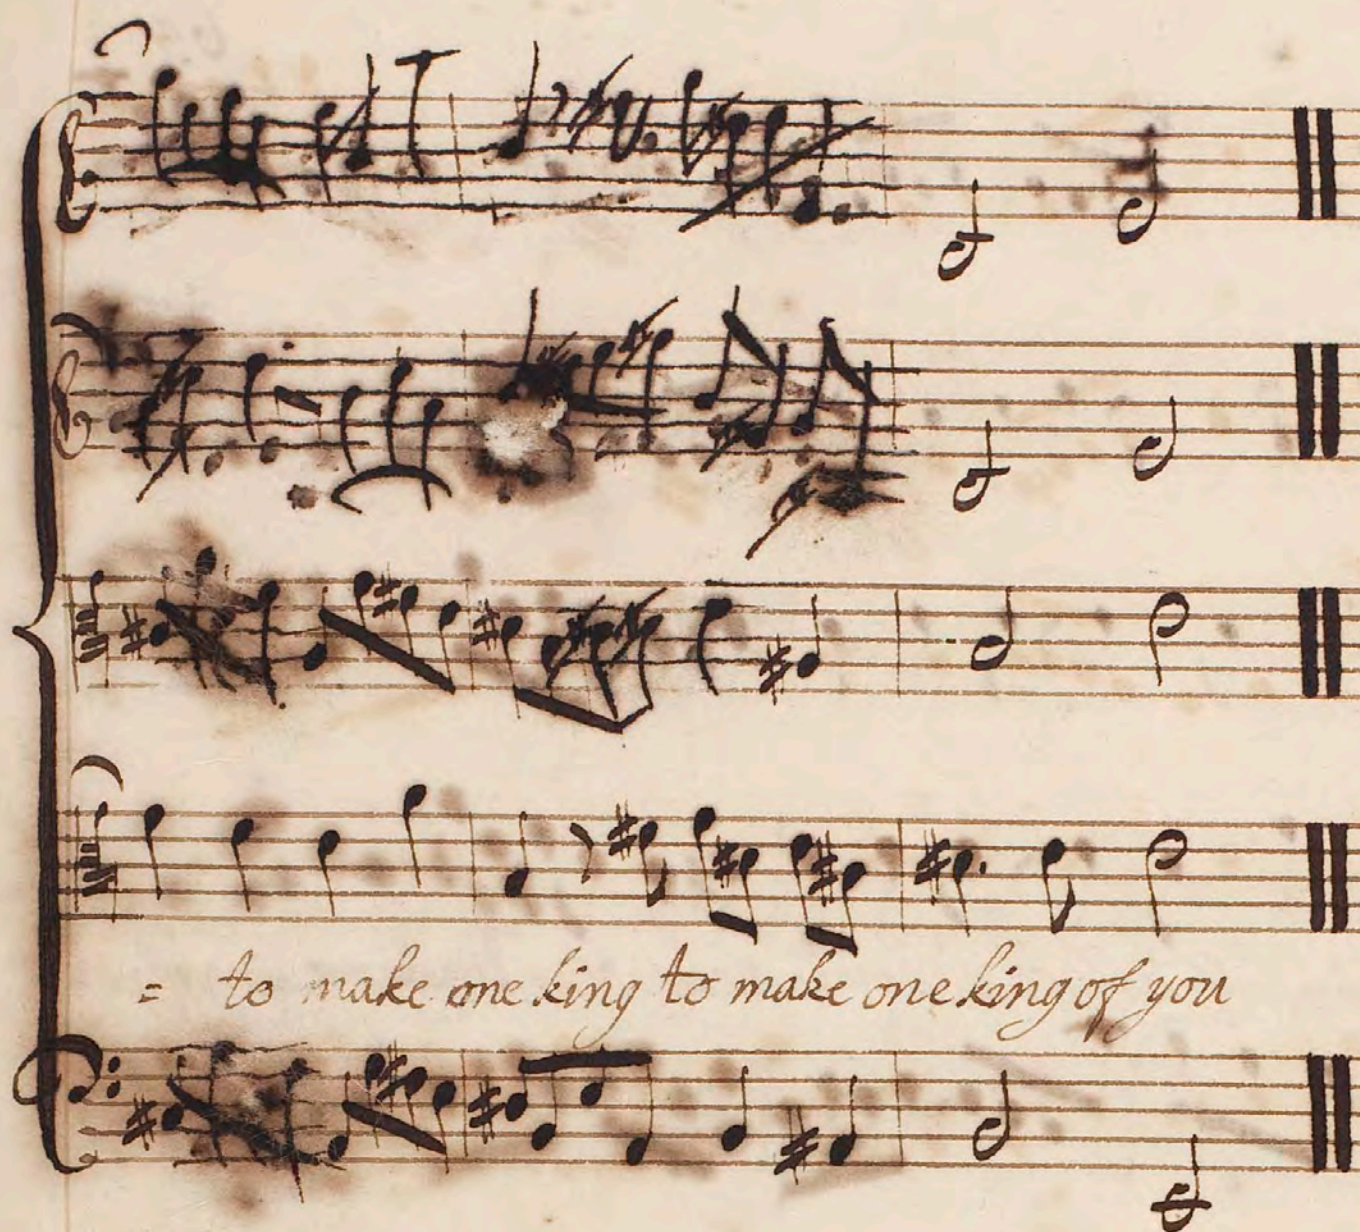 = to make one king to make one king of you